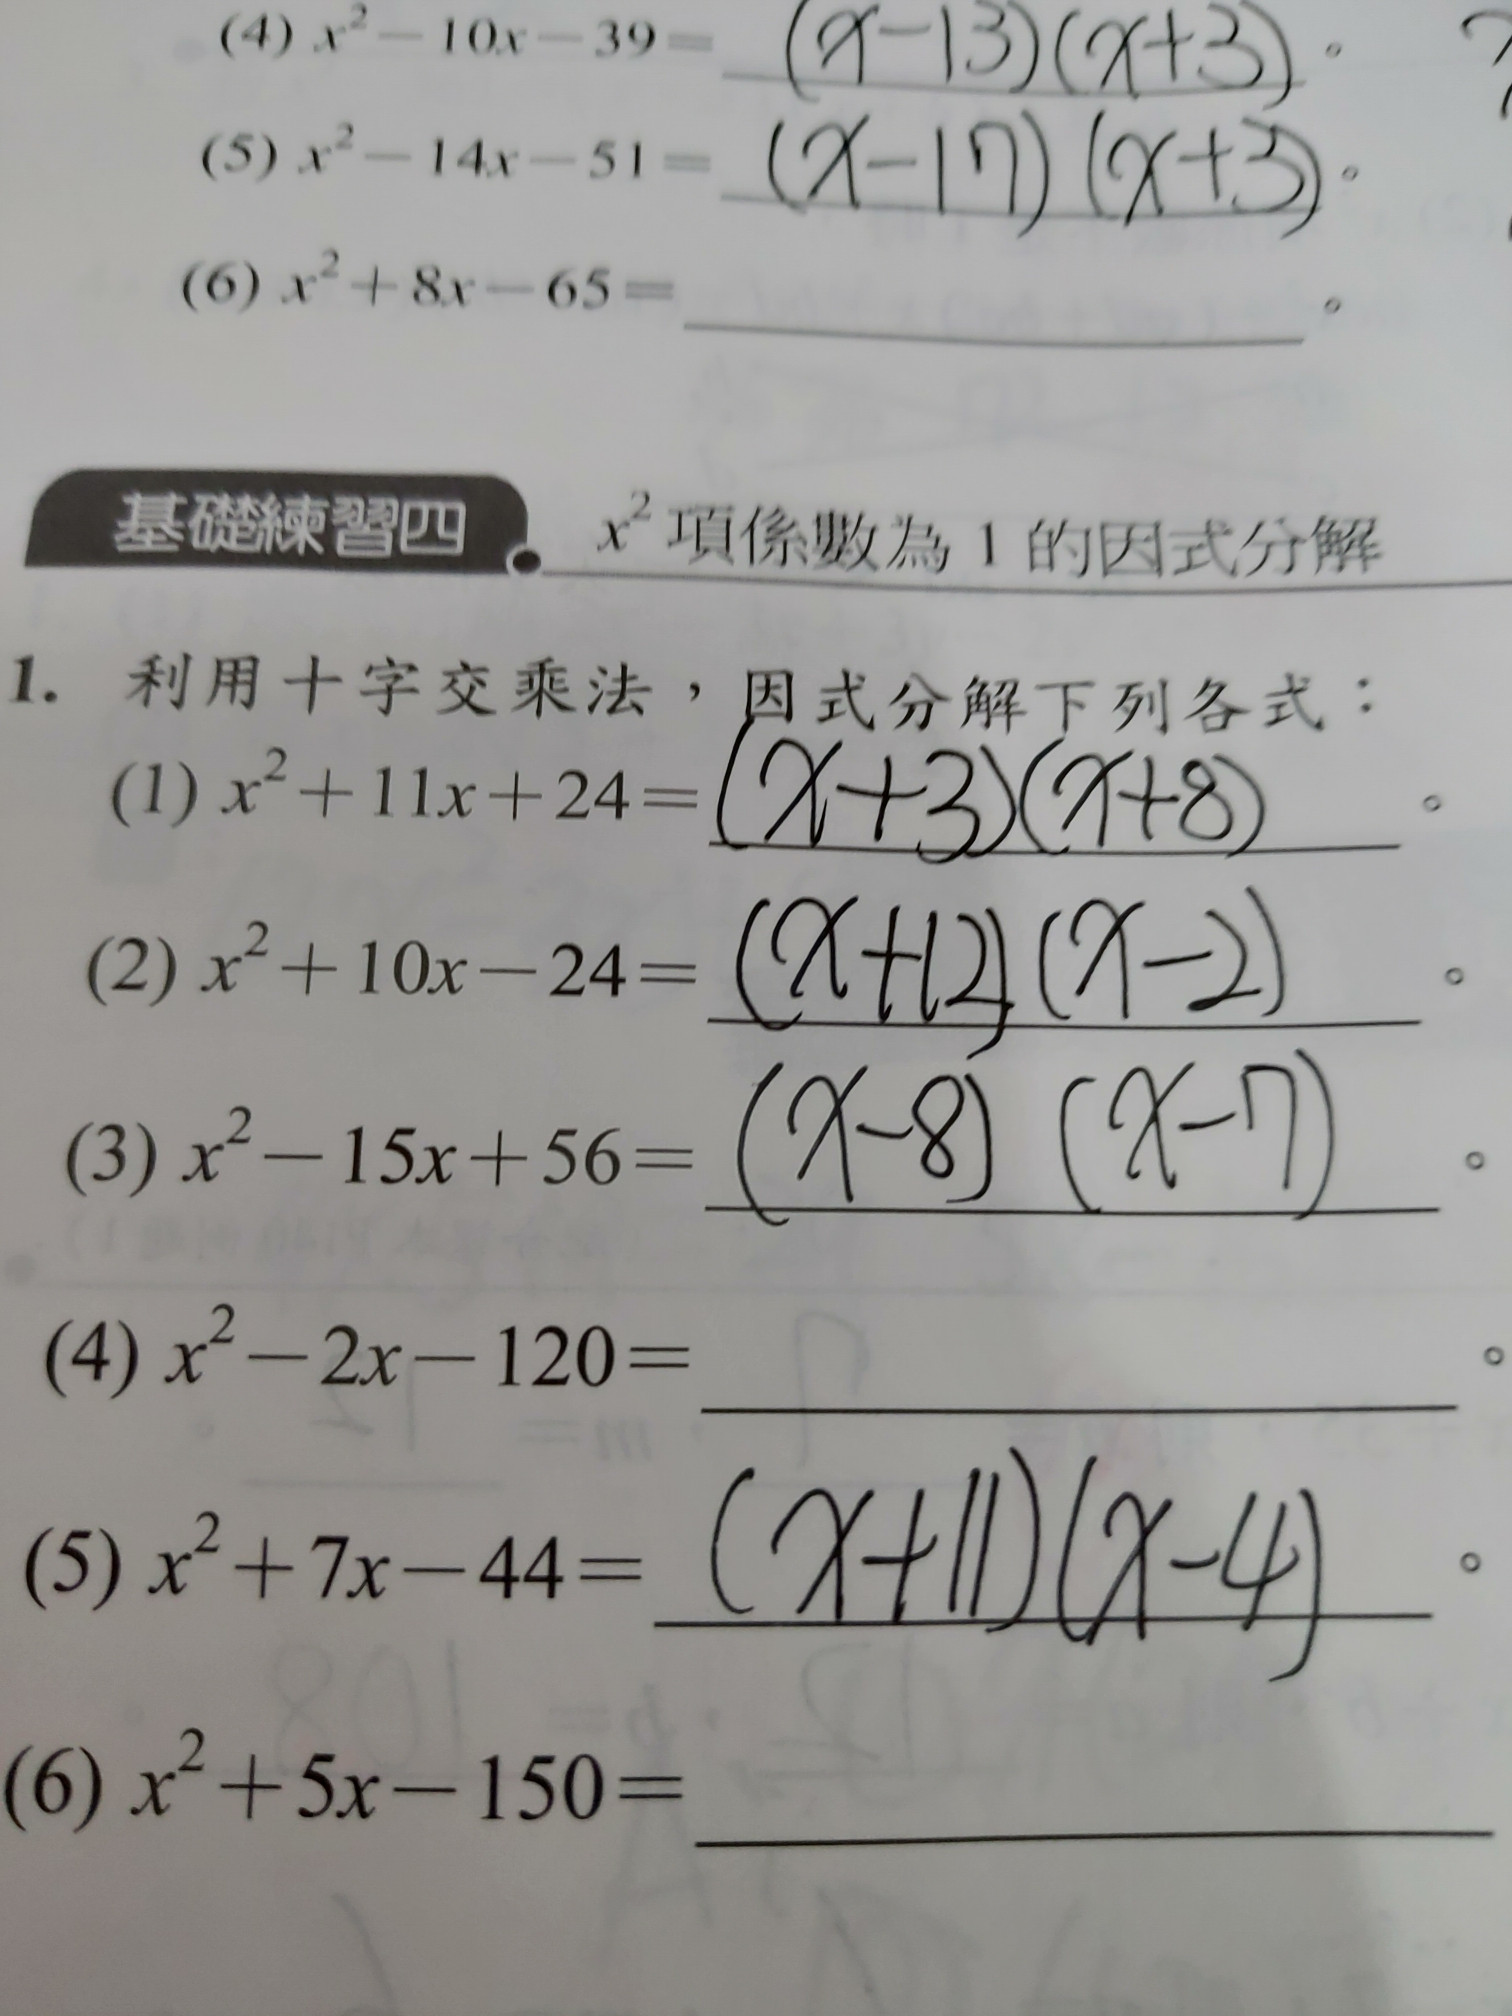 (4) x²－10x－39＝(x-13)(x+3)。
(5) x²－14x－51＝(x-17)(x+3)。
(6) x²＋8x－65＝。
基礎練習四 x²項係數為1的因式分解
1. 利用十字交乘法，因式分解下列各式：
(1) x²＋11x＋24＝(x+3)(x+8)。
(2) x²＋10x－24＝(x+12)(x-2)。
(3) x²－15x＋56＝(x-8)(x-7)。
(4) x²－2x－120＝。
(5) x²＋7x－44＝(x+11)(x-4)。
(6) x²＋5x－150＝